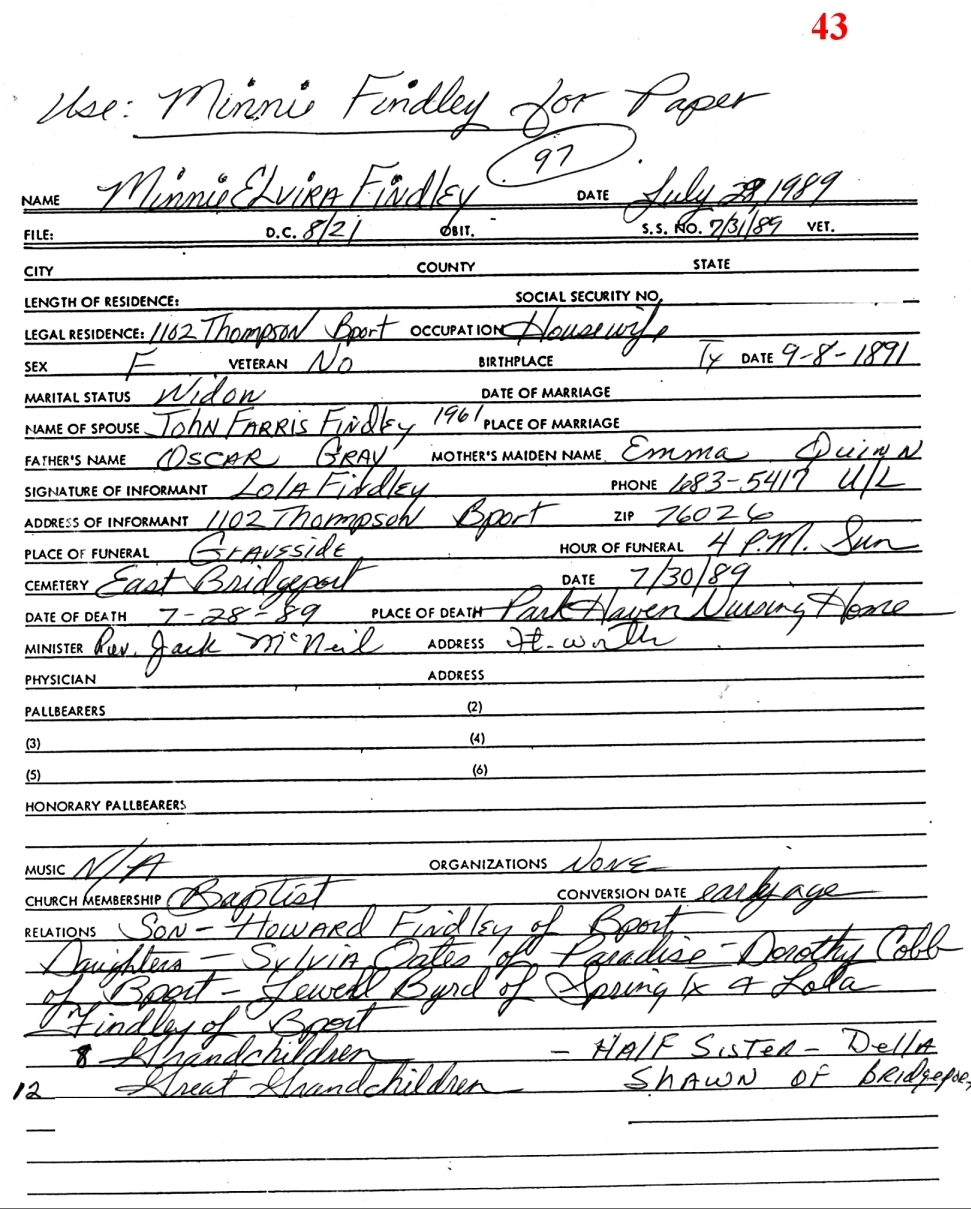 43
Use: Minnie Findley for Paper
97
NAME Minnie ELVIRA FINDLEY DATE July 28, 1989
FILE: D.C. 8/21 OBIT. S.S. NO. 7/31/89 VET.
CITY COUNTY STATE
LENGTH OF RESIDENCE: SOCIAL SECURITY NO.
LEGAL RESIDENCE: 1102 Thompson Bport OCCUPATION Housewife
SEX F VETERAN No BIRTHPLACE Tx DATE 9-8-1891
MARITAL STATUS Widow DATE OF MARRIAGE
NAME OF SPOUSE John FARRIS FINDLEY 1961 PLACE OF MARRIAGE
FATHER'S NAME OSCAR GRAY MOTHER'S MAIDEN NAME Emma Quinn
SIGNATURE OF INFORMANT LOLA FINDLEY PHONE 683-5417 U/L
ADDRESS OF INFORMANT 1102 Thompson Bport ZIP 76026
PLACE OF FUNERAL GRAVESIDE HOUR OF FUNERAL 4 P.M. Sun
CEMETERY East Bridgeport DATE 7/30/89
DATE OF DEATH 7-28-89 PLACE OF DEATH Park Haven Nursing Home
MINISTER Rev. Jack McNeil ADDRESS Ft. Worth
PHYSICIAN ADDRESS
PALLBEARERS (2)
(3) (4)
(5) (6)
HONORARY PALLBEARERS
MUSIC N/A ORGANIZATIONS NONE
CHURCH MEMBERSHIP Baptist CONVERSION DATE early age
RELATIONS SON - HOWARD Findley of Bport
Daughters - SYLVIA Oates of Paradise - Dorothy Cobb
of Bport - Jewell Byrd of Spring Tx & Lola
Findley of Bport
8 Grandchildren - HALF SISTER - DellA
12 Great Grandchildren SHAWN OF Bridgepor